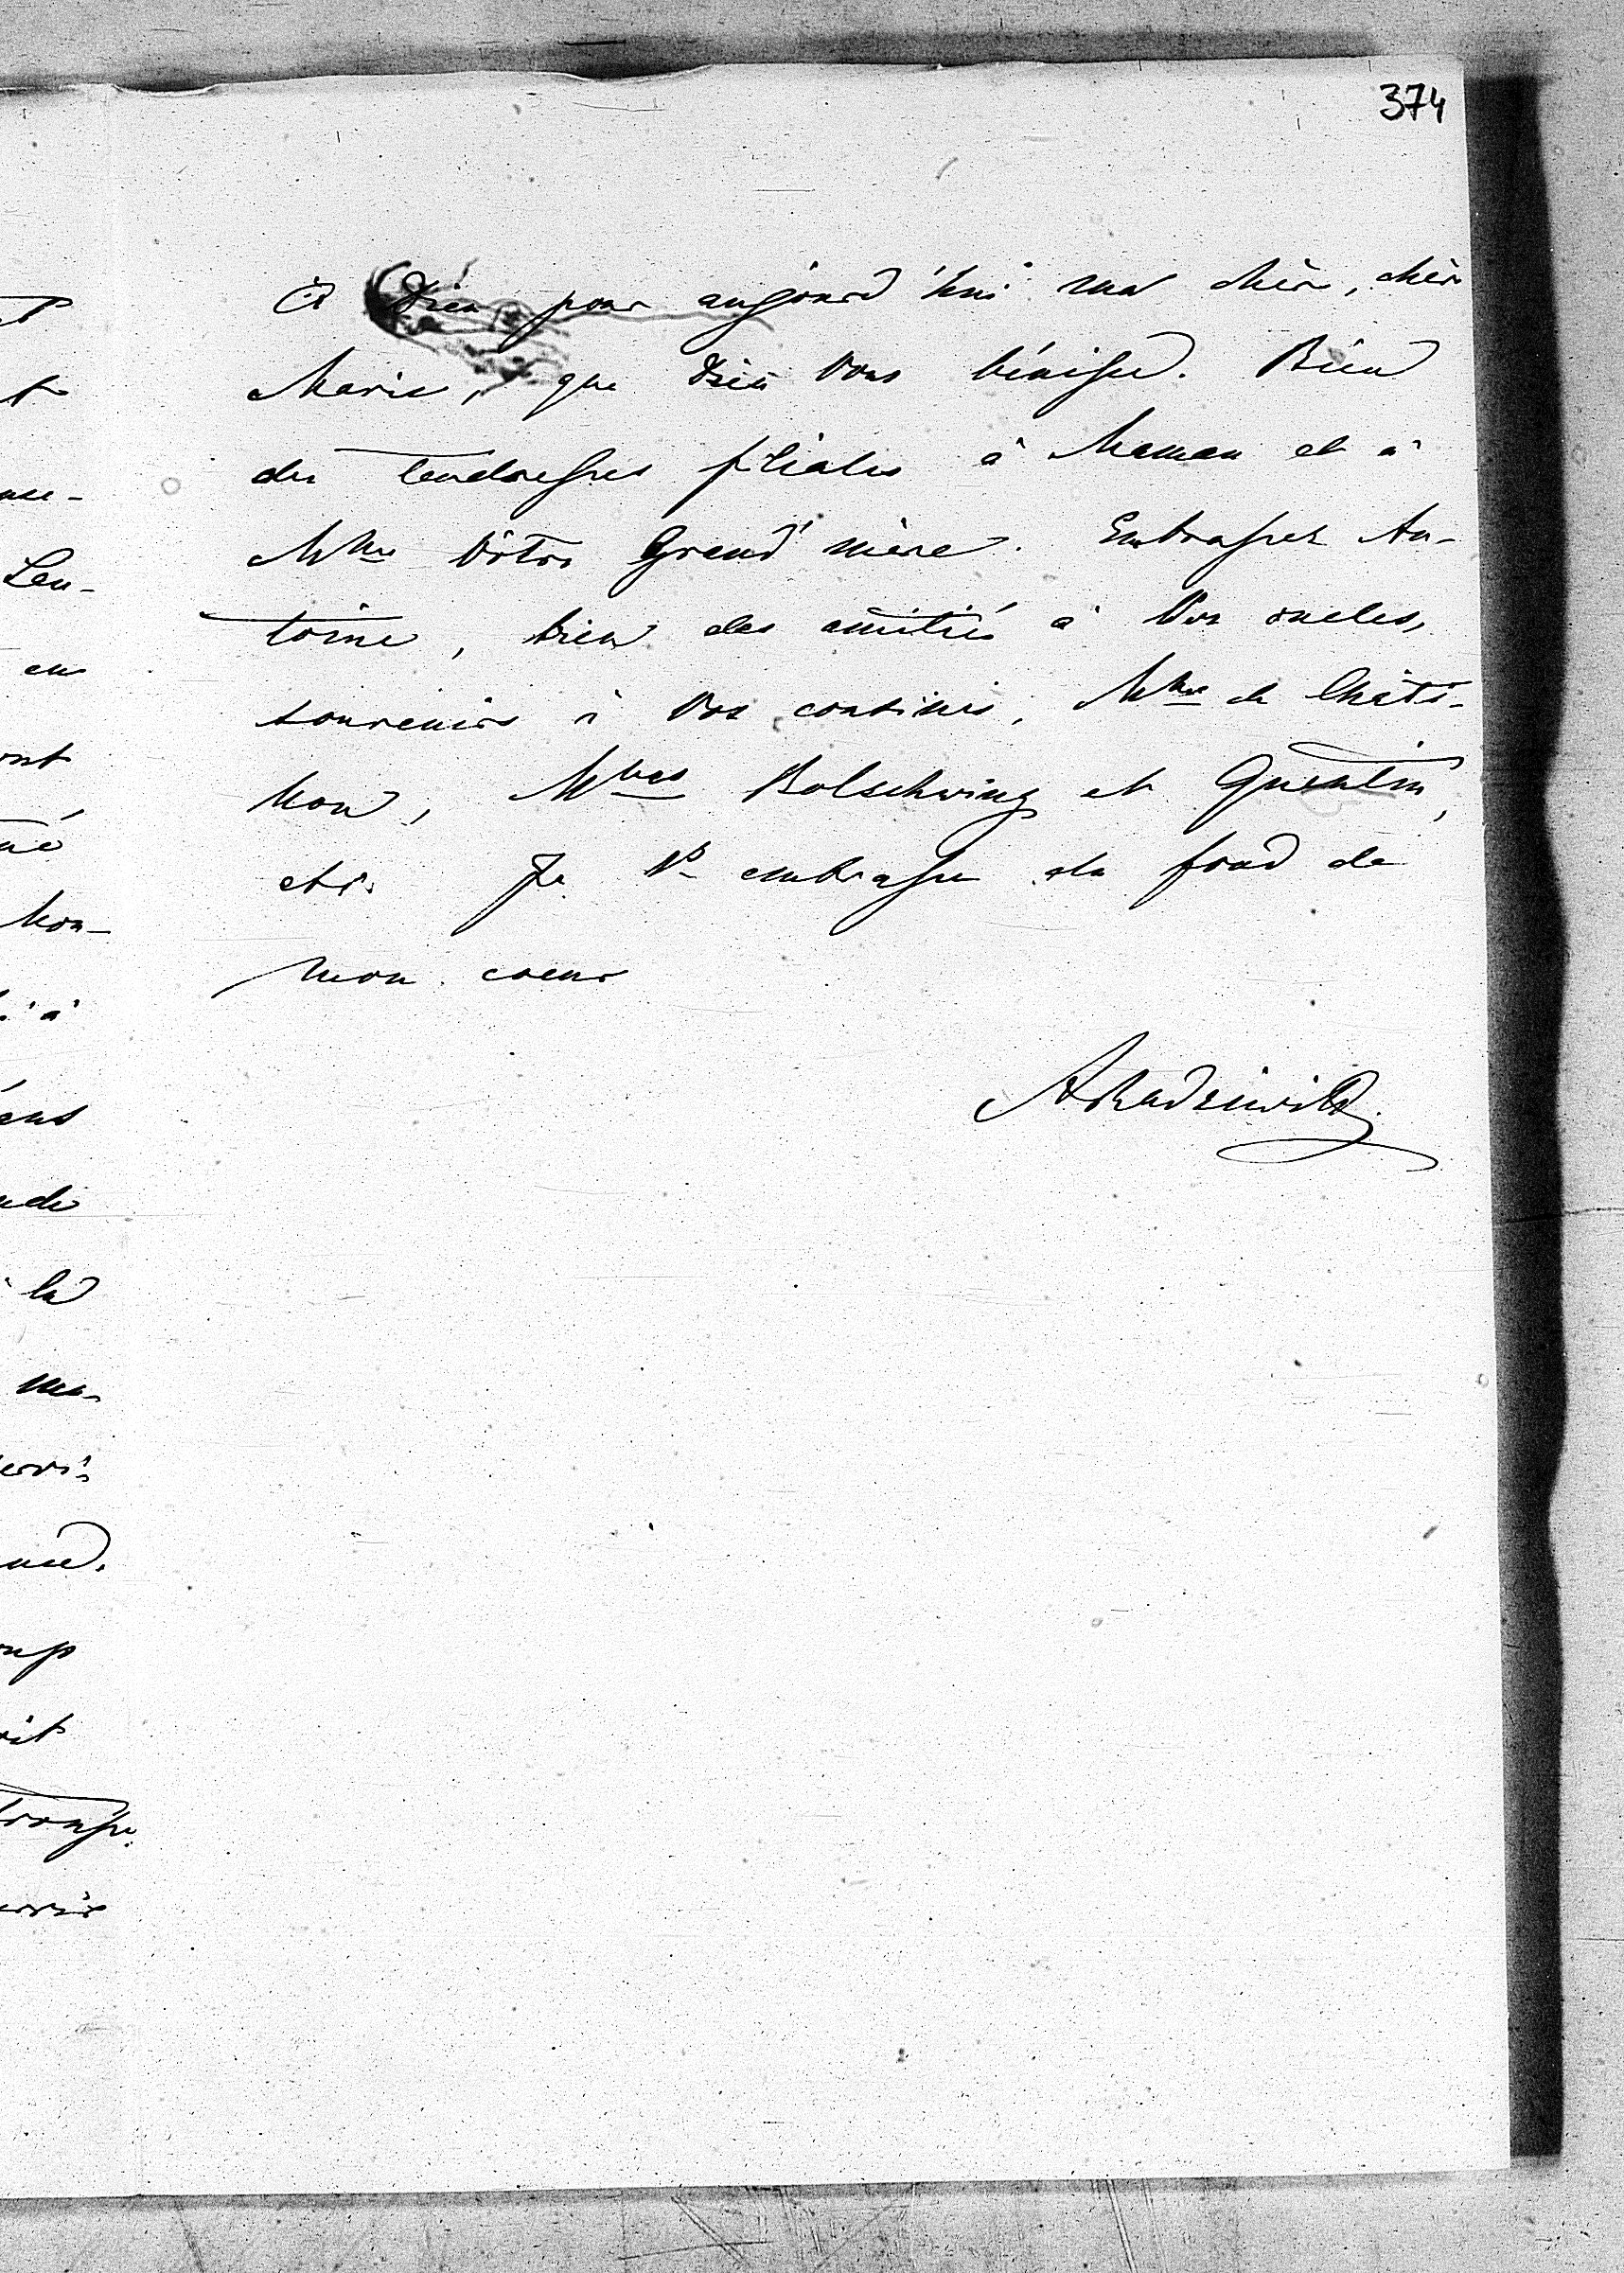 374
A Dieu pour aujourd'hui ma chère, chère
Marie, que Dieu Vous bénisse. Bien
des tendresses filiales à Maman et à
Mme Votre Grand'mère. Embrassez An-
toine, bien des amitiés à Vos oncles,
souvenirs à Vos cousines, Mme de Châtil-
lon, Mmes Bolschwing et Quentin,
etc. Je Vs embrasse du fond de
mon coeur
ARadziwill